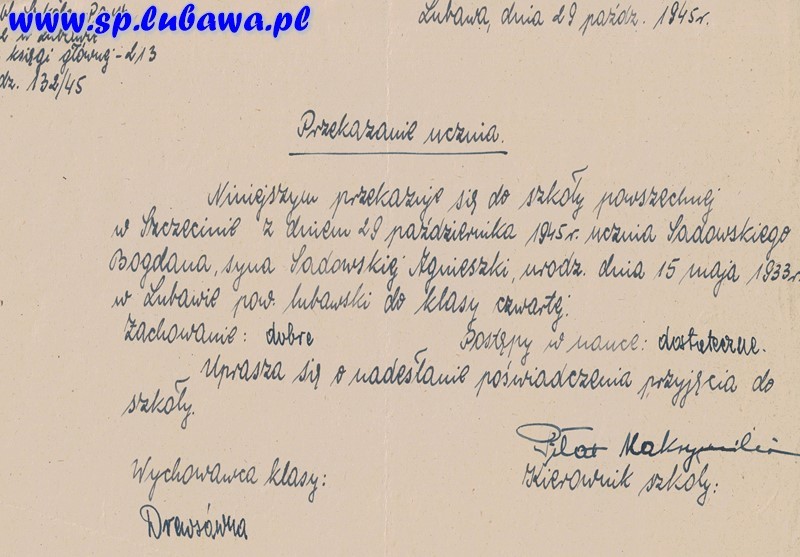 www.sp.lubawa.pl
Lubawa, dnia 29 paźdz. 1945r.
w Lubawie
księgi głównej - 213
dz. 132/45
Przekazanie ucznia.
Niniejszym przekazuje się do szkoły powszechnej
w Szczecinie z dniem 29 października 1945r. ucznia Sadowskiego
Bogdana, syna Sadowskiej Agnieszki, urodz. dnia 15 maja 1933r.
w Lubawie pow. lubawski do klasy czwartej.
Zachowanie: dobre Postępy w nauce: dostateczne.
Uprasza się o nadesłanie poświadczenia przyjęcia do
szkoły.
Wychowawca klasy:
Drewsówna
Pilat Maksymilian
Kierownik szkoły: